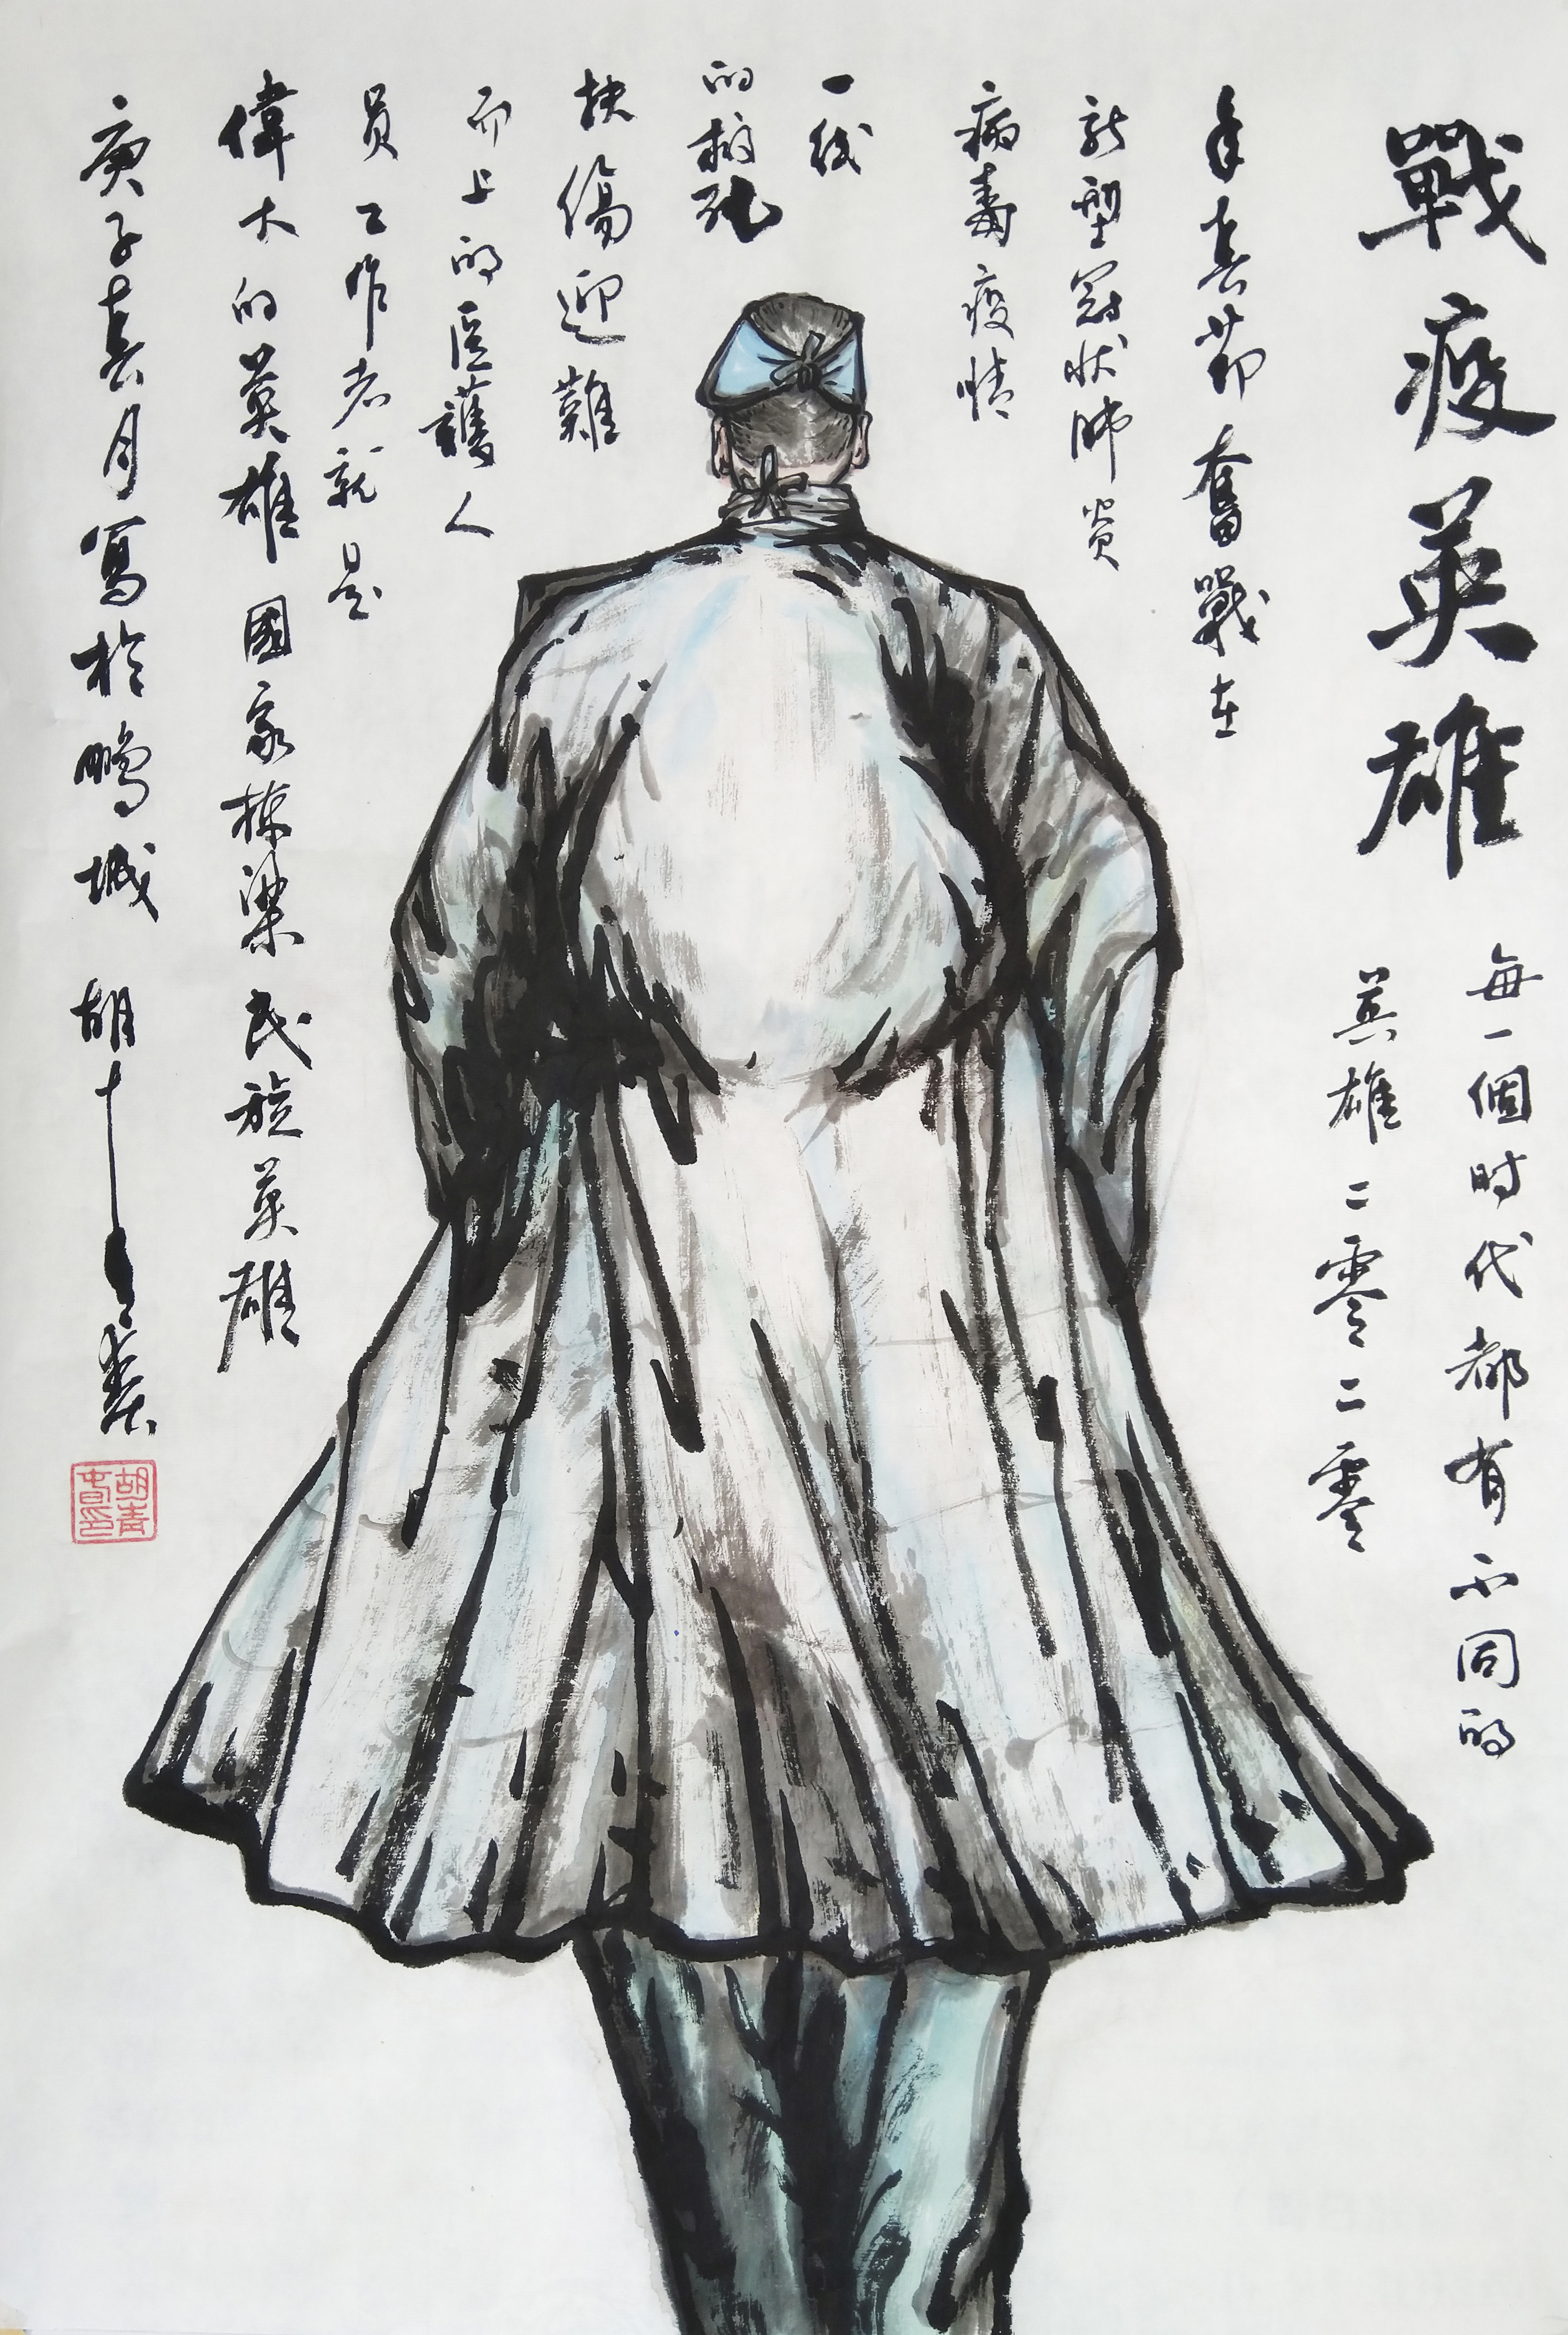 戰疫英雄
每一個时代都有不同的
英雄二零二零
年春节奮戰在
新型冠状肺炎
病毒疫情
一线
的救死
扶傷迎難
而上的医護人
员工作者就是
偉大的英雄國家栋梁民族英雄
庚子春月寫於鹏城胡十
胡青